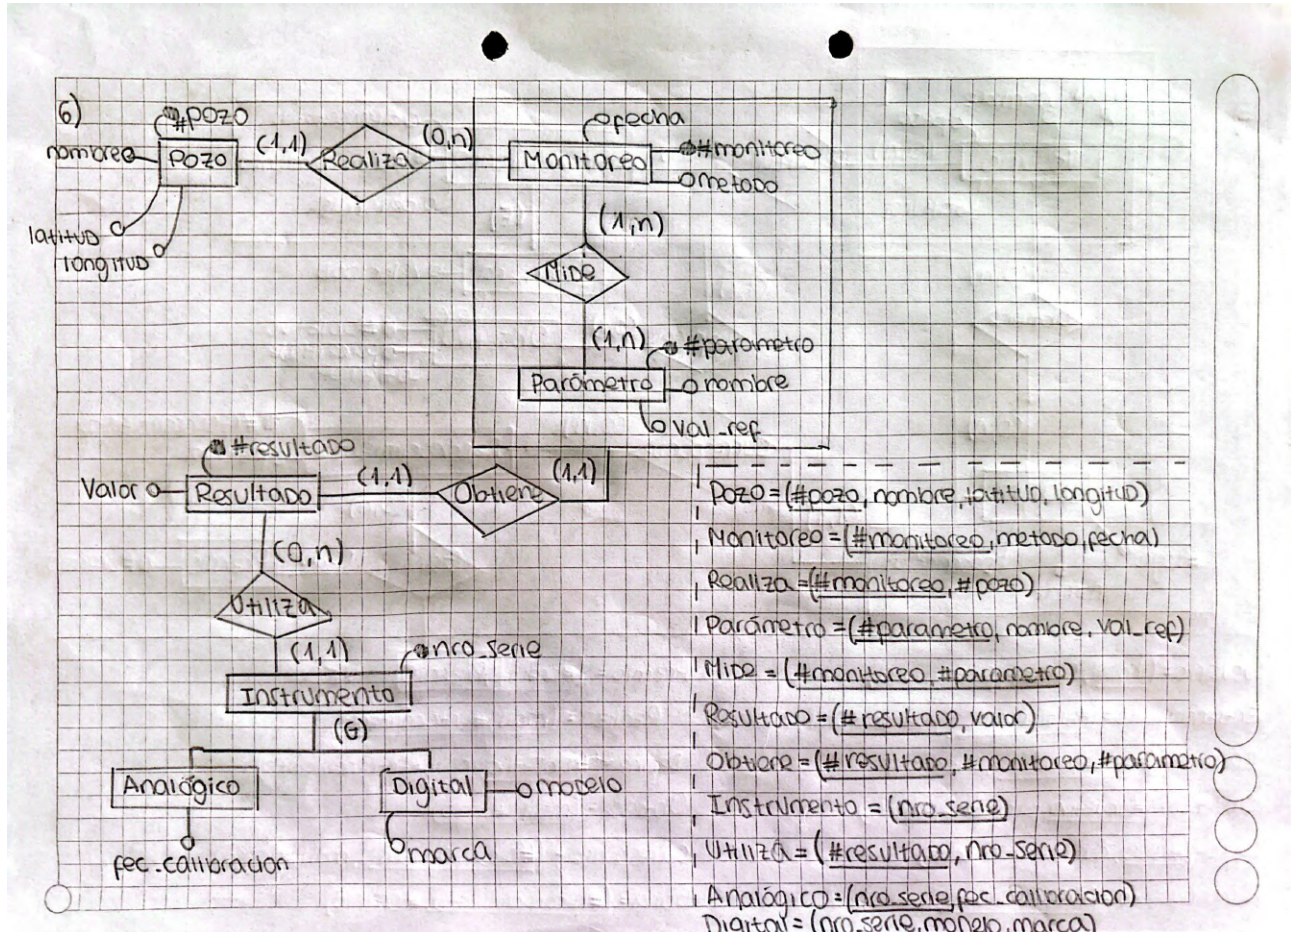 6)
#pozo
nombre
Pozo
(1,1)
Realiza
(0,n)
fecha
Monitoreo
#monitoreo
metodo
latitud
longitud
(1,n)
Mide
(1,n)
#parametro
Parámetro
nombre
val_ref
#resultado
Valor
Resultado
(1,1)
Obtiene
(1,1)
(0,n)
Utiliza
(1,1)
nro_serie
Instrumento
(G)
Analógico
Digital
modelo
fec_calibracion
marca
Pozo = (#pozo, nombre, latitud, longitud)
Monitoreo = (#monitoreo, metodo, fecha)
Realiza = (#monitoreo, #pozo)
Parámetro = (#parametro, nombre, val_ref)
Mide = (#monitoreo, #parametro)
Resultado = (#resultado, valor)
Obtiene = (#resultado, #monitoreo, #parametro)
Instrumento = (nro_serie)
Utiliza = (#resultado, nro_serie)
Analógico = (nro_serie, fec_calibracion)
Digital = (nro_serie, modelo, marca)